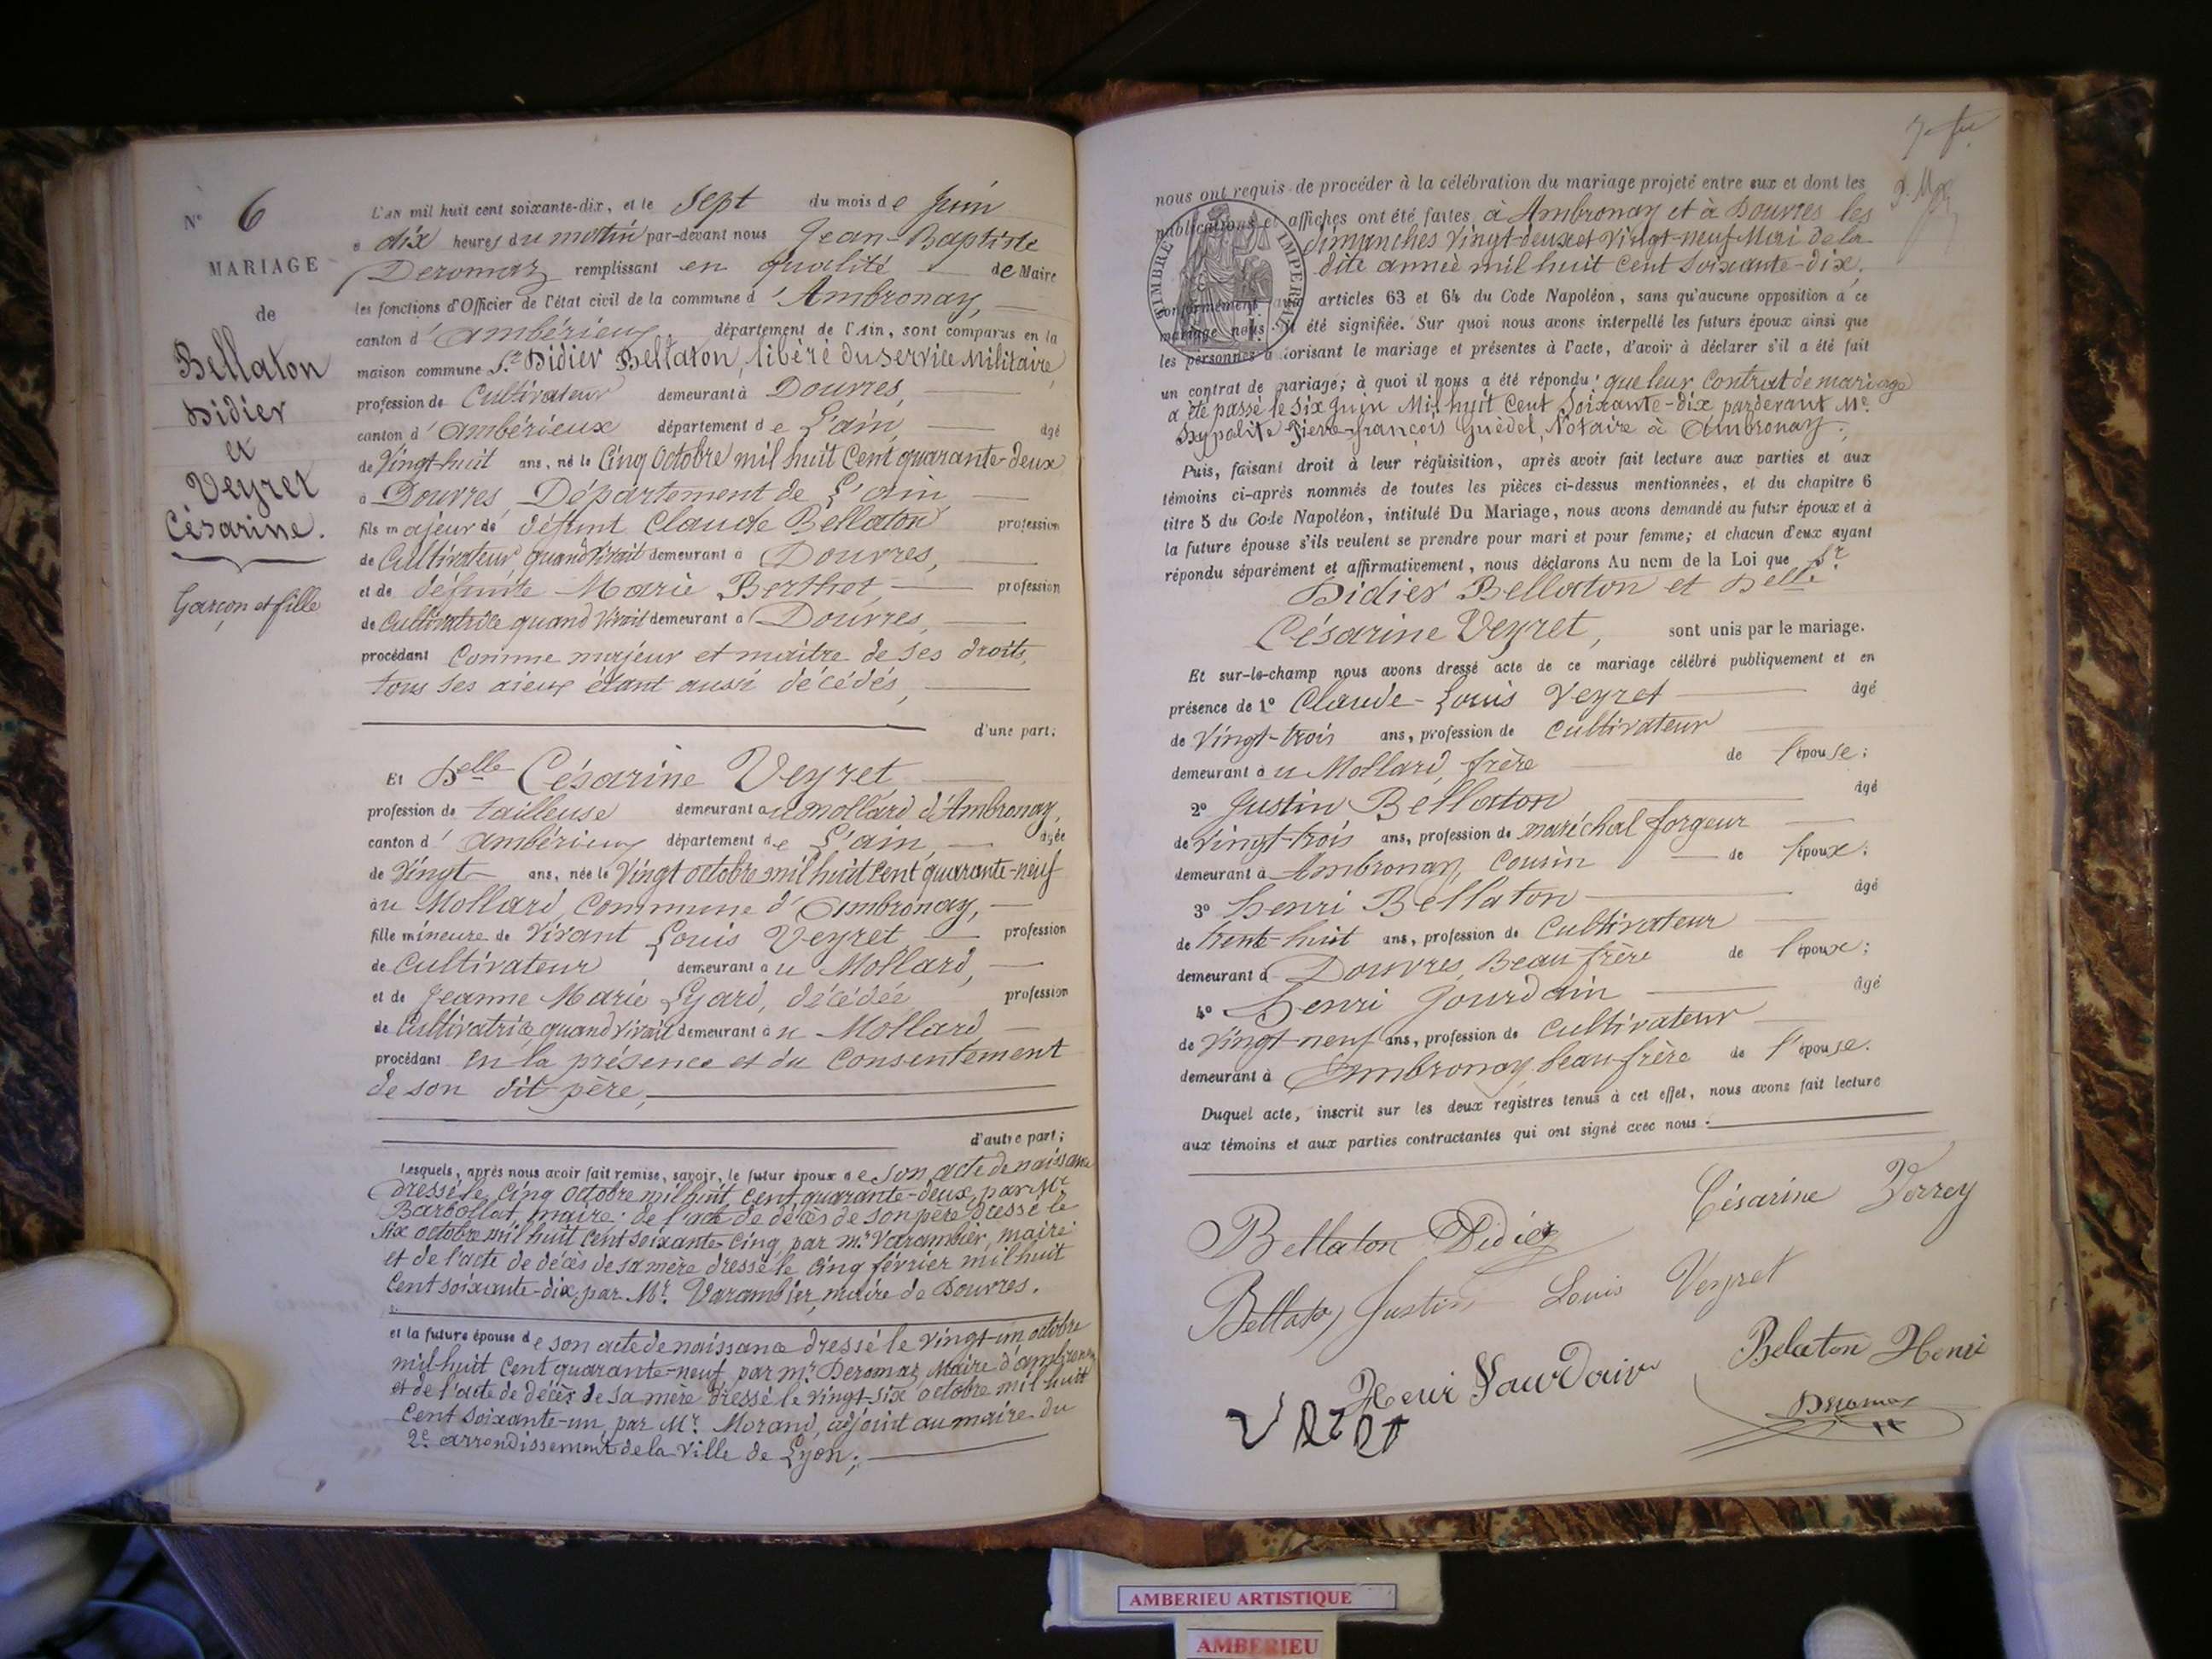 N° 6
MARIAGE
de
Bellaton
Didier
et
Veyret
Césarine.
Garçon et fille
L'AN mil huit cent soixante-dix, et le Sept du mois de Juin
à dix heures du matin par-devant nous Jean-Baptiste
Deromaz remplissant en qualité de Maire
les fonctions d'Officier de l'état civil de la commune d'Ambronay,
canton d'ambérieux, département de l'Ain, sont comparus en la
maison commune Sr Didier Bellaton, libéré du service Militaire,
profession de Cultivateur demeurant à Douvres,
canton d'ambérieux département de L'ain, âgé
de Vingt-huit ans, né le Cinq Octobre mil huit Cent quarante-deux
à Douvres, Département de L'ain
fils majeur de défunt Claude Bellaton profession
de Cultivateur quand vivait demeurant à Douvres,
et de défunte Marie Berthet, profession
de Cultivatrice quand vivait demeurant à Douvres,
procédant Comme majeur et maître de ses droits,
tous ses aieux étant aussi décédés,
d'une part;
Et Delle Césarine Veyret
profession de tailleuse demeurant au mollard d'Ambronay,
canton d'ambérieux département de L'ain, âgée
de Vingt ans, née le Vingt octobre mil huit Cent quarante-neuf
au Mollard, Commune d'Ambronay,
fille mineure de Vivant Louis Veyret profession
de Cultivateur demeurant au Mollard,
et de Jeanne Marie Lyard, décédée profession
de Cultivatrice quand vivait demeurant au Mollard
procédant en la présence et du Consentement
de son dit père,
d'autre part;
Lesquels, après nous avoir fait remise, savoir, le futur époux de son acte de naissance
dressé le cinq octobre mil huit cent quarante-deux, par Mr
Barbollat, maire; de l'acte de décès de son père dressé le
six octobre mil huit cent soixante-cinq, par mr Varambier, maire
et de l'acte de décès de sa mère dressé le cinq février mil huit
cent soixante-dix, par Mr. Varambier, maire de Douvres.
et la future épouse de son acte de naissance dressé le vingt-un octobre
mil-huit Cent quarante-neuf, par mr Deromaz, Maire d'ambronay
et de l'acte de décès de sa mère dressé le vingt-six octobre mil huit
cent soixante-un, par Mr. Morand, adjoint au maire du
2e arrondissement de la ville de Lyon;
nous ont requis de procéder à la célébration du mariage projeté entre eux et dont les
publications et affiches ont été faites, à Ambronay et à Douvres les
dimanches Vingt-deux et Vingt-neuf Mai de la
dite année mil huit cent soixante-dix.
TIMBRE IMPÉRIAL
conformément aux articles 63 et 64 du Code Napoléon, sans qu'aucune opposition à ce
mariage nous ait été signifiée. Sur quoi nous avons interpellé les futurs époux ainsi que
les personnes autorisant le mariage et présentes à l'acte, d'avoir à déclarer s'il a été fait
un contrat de mariage; à quoi il nous a été répondu: que leur Contrat de mariage
a été passé le six Juin Mil huit Cent Soixante-dix pardevant Me
Hypolite Pierre-françois Guédel, Notaire à Ambronay;
Puis, faisant droit à leur réquisition, après avoir fait lecture aux parties et aux
témoins ci-après nommés de toutes les pièces ci-dessus mentionnées, et du chapitre 6
titre 5 du Code Napoléon, intitulé Du Mariage, nous avons demandé au futur époux et à
la future épouse s'ils veulent se prendre pour mari et pour femme; et chacun d'eux ayant
répondu séparément et affirmativement, nous déclarons Au nom de la Loi que Sr
Didier Bellaton et Delle
Césarine Veyret, sont unis par le mariage.
Et sur-le-champ nous avons dressé acte de ce mariage célébré publiquement et en
présence de 1° Claude-Louis Veyret âgé
de Vingt-trois ans, profession de Cultivateur
demeurant au Mollard, frère de l'épouse;
2° Justin Bellaton âgé
de Vingt-trois ans, profession de maréchal forgeur
demeurant à Ambronay, Cousin de l'époux;
3° henri Bellaton âgé
de trente-huit ans, profession de Cultivateur
demeurant à Douvres, Beau frère de l'époux;
4° henri Jourdain âgé
de Vingt-neuf ans, profession de Cultivateur
demeurant à Ambronay, beau-frère de l'épouse.
Duquel acte, inscrit sur les deux registres tenus à cet effet, nous avons fait lecture
aux témoins et aux parties contractantes qui ont signé avec nous:
Bellaton Didier Césarine Verrey
Bellaton Justin Louis Veyret
Henri Jourdain Belaton Henri
Deromaz
AMBERIEU ARTISTIQUE
AMBERIEU